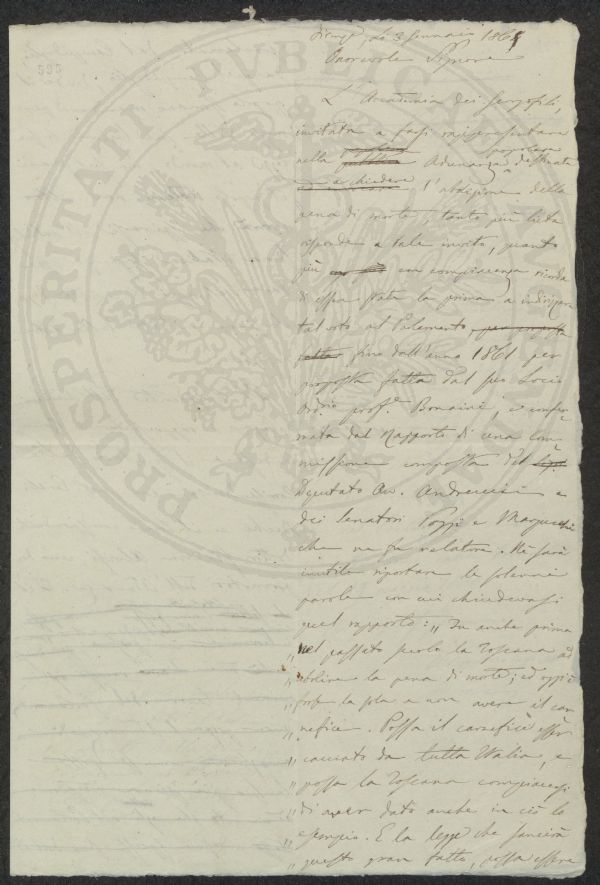 Firenze, Li 3 Gennaio 1865
Onorevole Signore
L'Accademia dei Georgofili,
invitata a farsi rappresentare
nella popolare Adunanza destinata
a chiedere l'abolizione della
pena di morte, tanto più lieta
risponde a tale invito, quanto
più con compiacenza ricorda
di essere stata la prima a indirizzare
tal voto al Parlamento,
fino dall'anno 1861 per
proposta fatta dal Socio
Ord. prof. Bonaini, e confer
mata dal Rapporto di una Com
missione composta del
Deputato Av. Andreucci e
dei Senatori Poggi e
che ne fu relatore. Nè sarà
inutile riportare le solenni
parole con cui chiudevasi
quel rapporto: "Fu anche prima
" nel passato secolo la Toscana ad
" abolire la pena di morte; ed oggi è
" forse la sola a non avere il car
" nefice. Possa il carnefice esser
" cacciato da tutta Italia, e
" possa la Toscana compiacersi
" di aver dato anche in ciò lo
" esempio. E la legge che sancirà
" questo gran fatto, possa essere
PROSPERITATI PVBLICAE
292